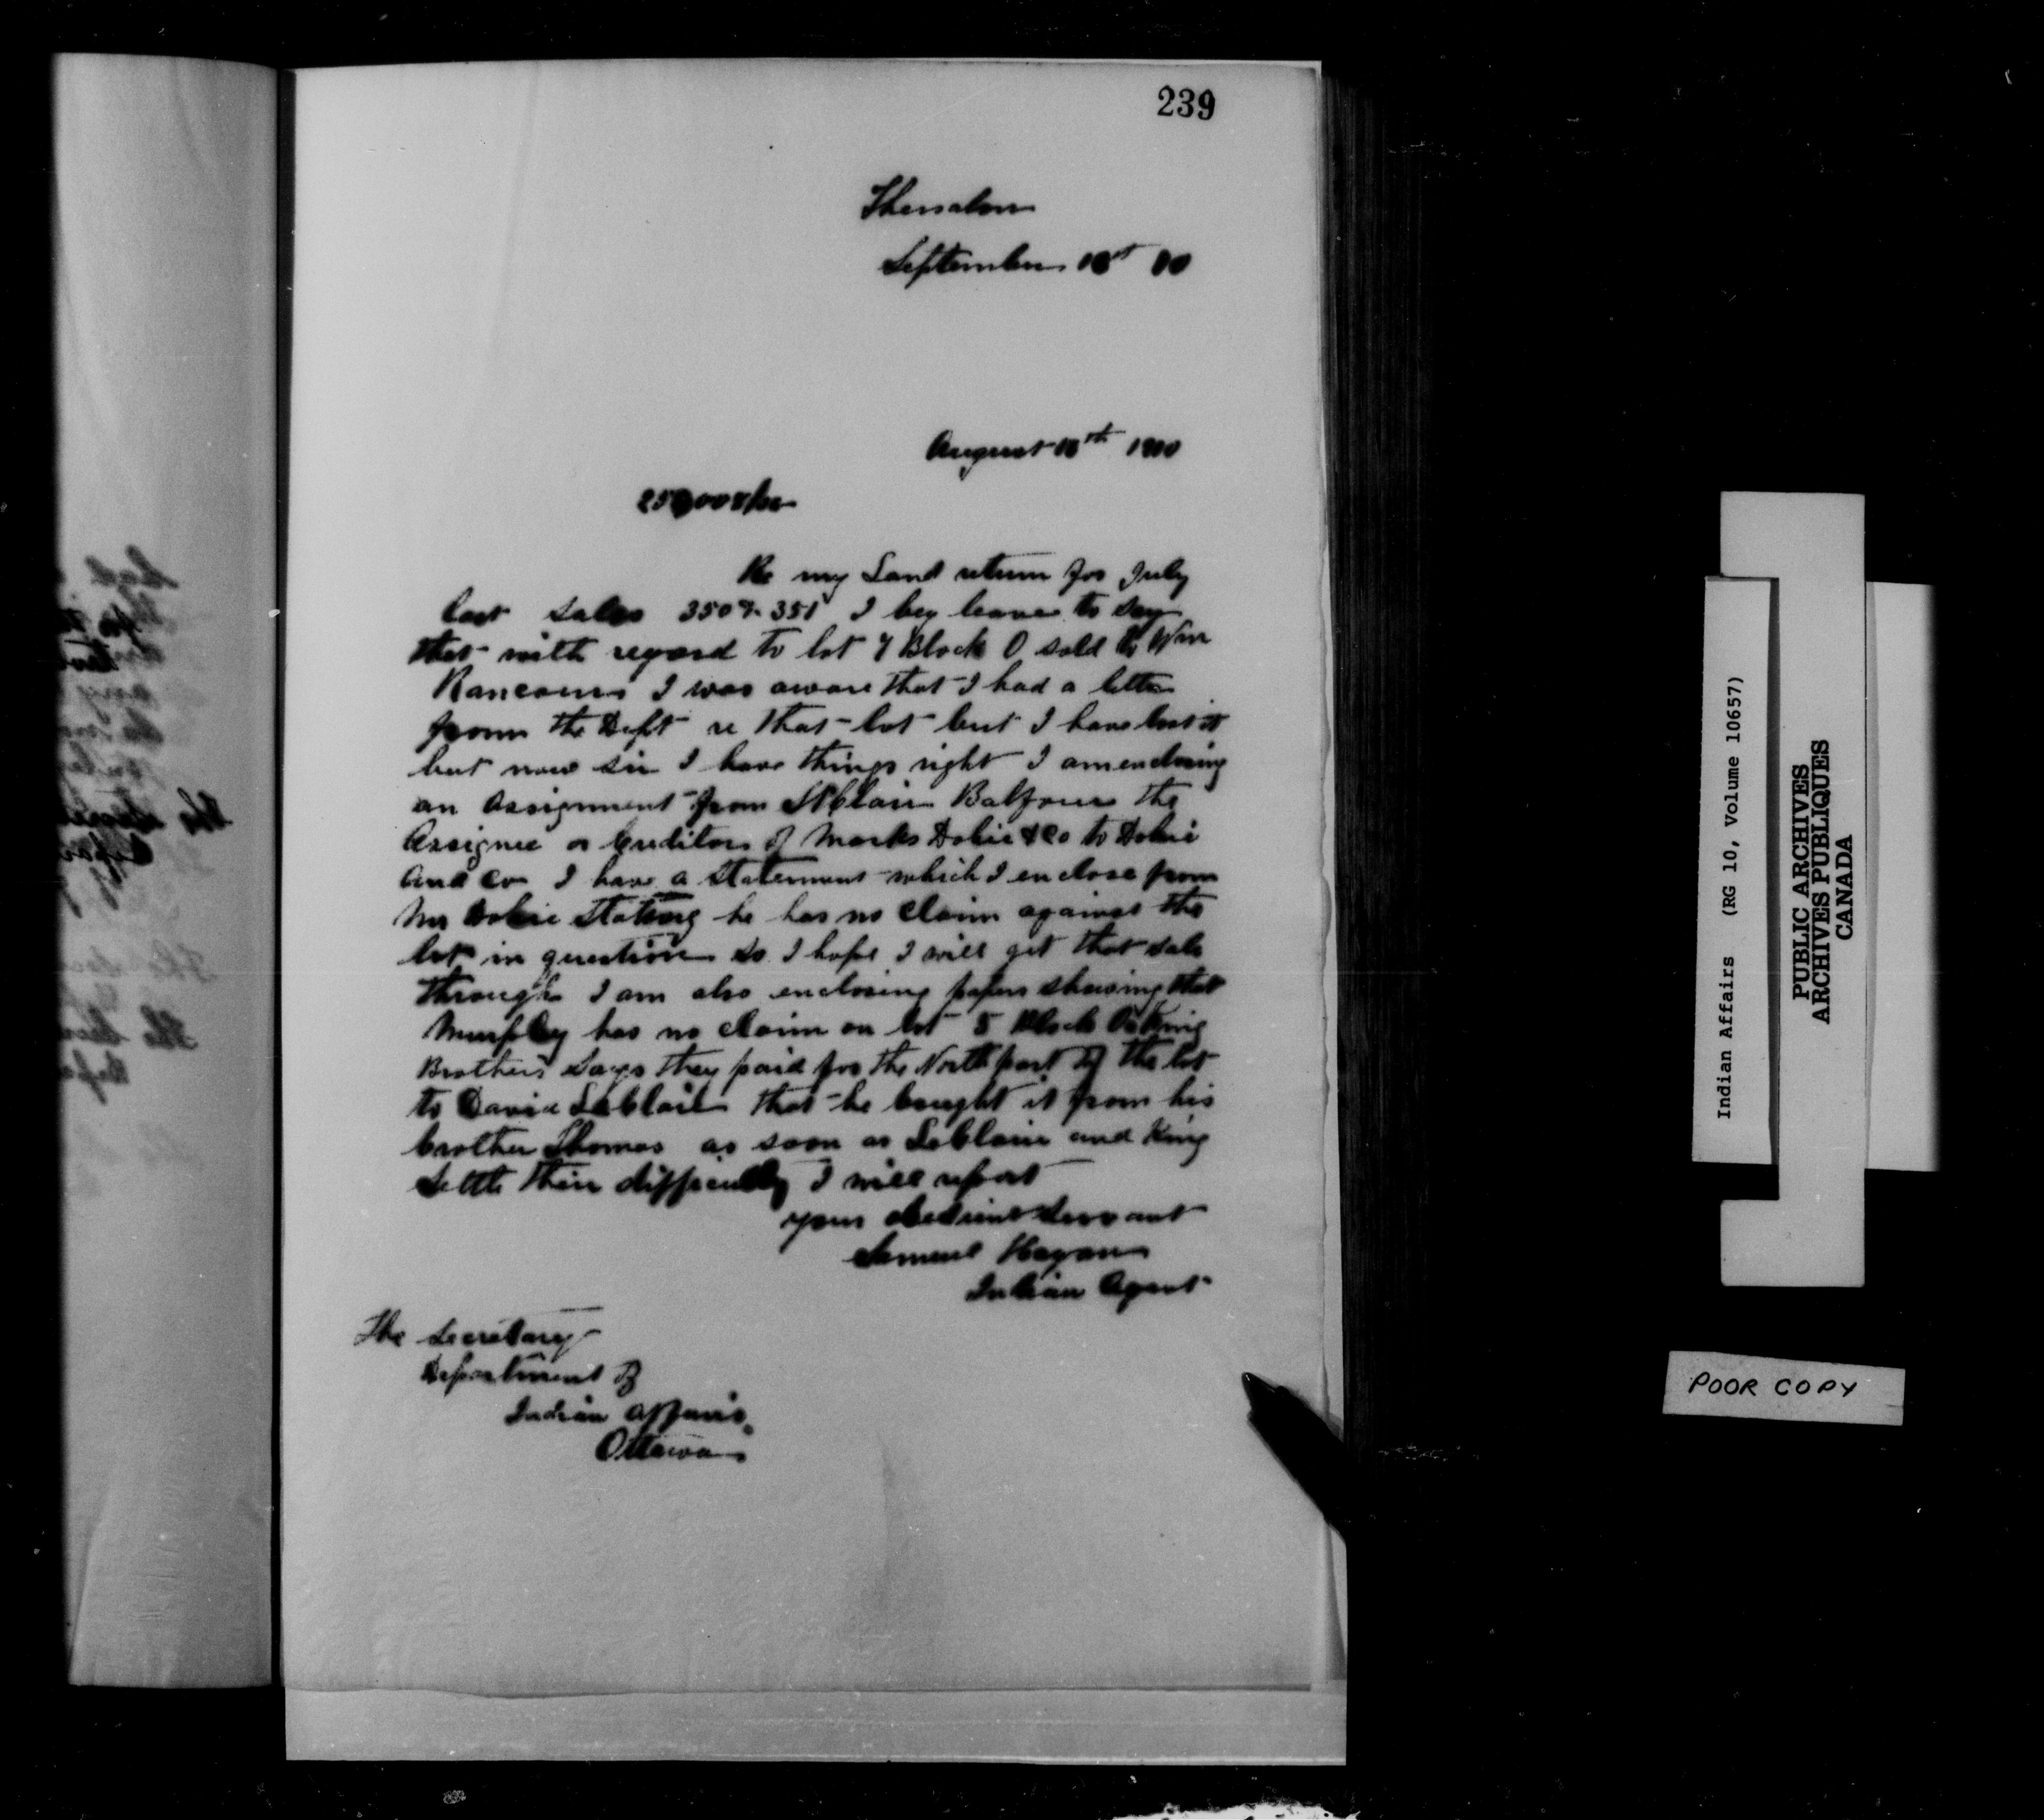 239
Thessalon
September 18th 00
August 18th 1900
Re my Land return for July
last sales 350 & 351 I beg leave to say
that with regard to lot 7 Block O sold to Wm
Rancours I was aware that I had a letter
from the Dept re that lot but I have lost it
but now sir I have things right I am enclosing
an assignment from StClair Balfour the
Assignee or Creditors of Marks Dobie & Co to Dobie
and Co I have a statement which I enclose from
Mr Dobie stating he has no claim against the
lot in question so I hope I will get that sale
through I am also enclosing papers showing that
Murphy has no claim on lot 5 Block King
Brothers says they paid for the North part of the lot
to David Leblair that he bought it from his
brother Thomas as soon as Leblair and King
settle their difficulty I will report
your obedient servant
Samuel Hagan
Indian Agent
The Secretary
Department of
Indian Affairs
Ottawa
Indian Affairs (RG 10, Volume 10657)
PUBLIC ARCHIVES
ARCHIVES PUBLIQUES
CANADA
POOR COPY